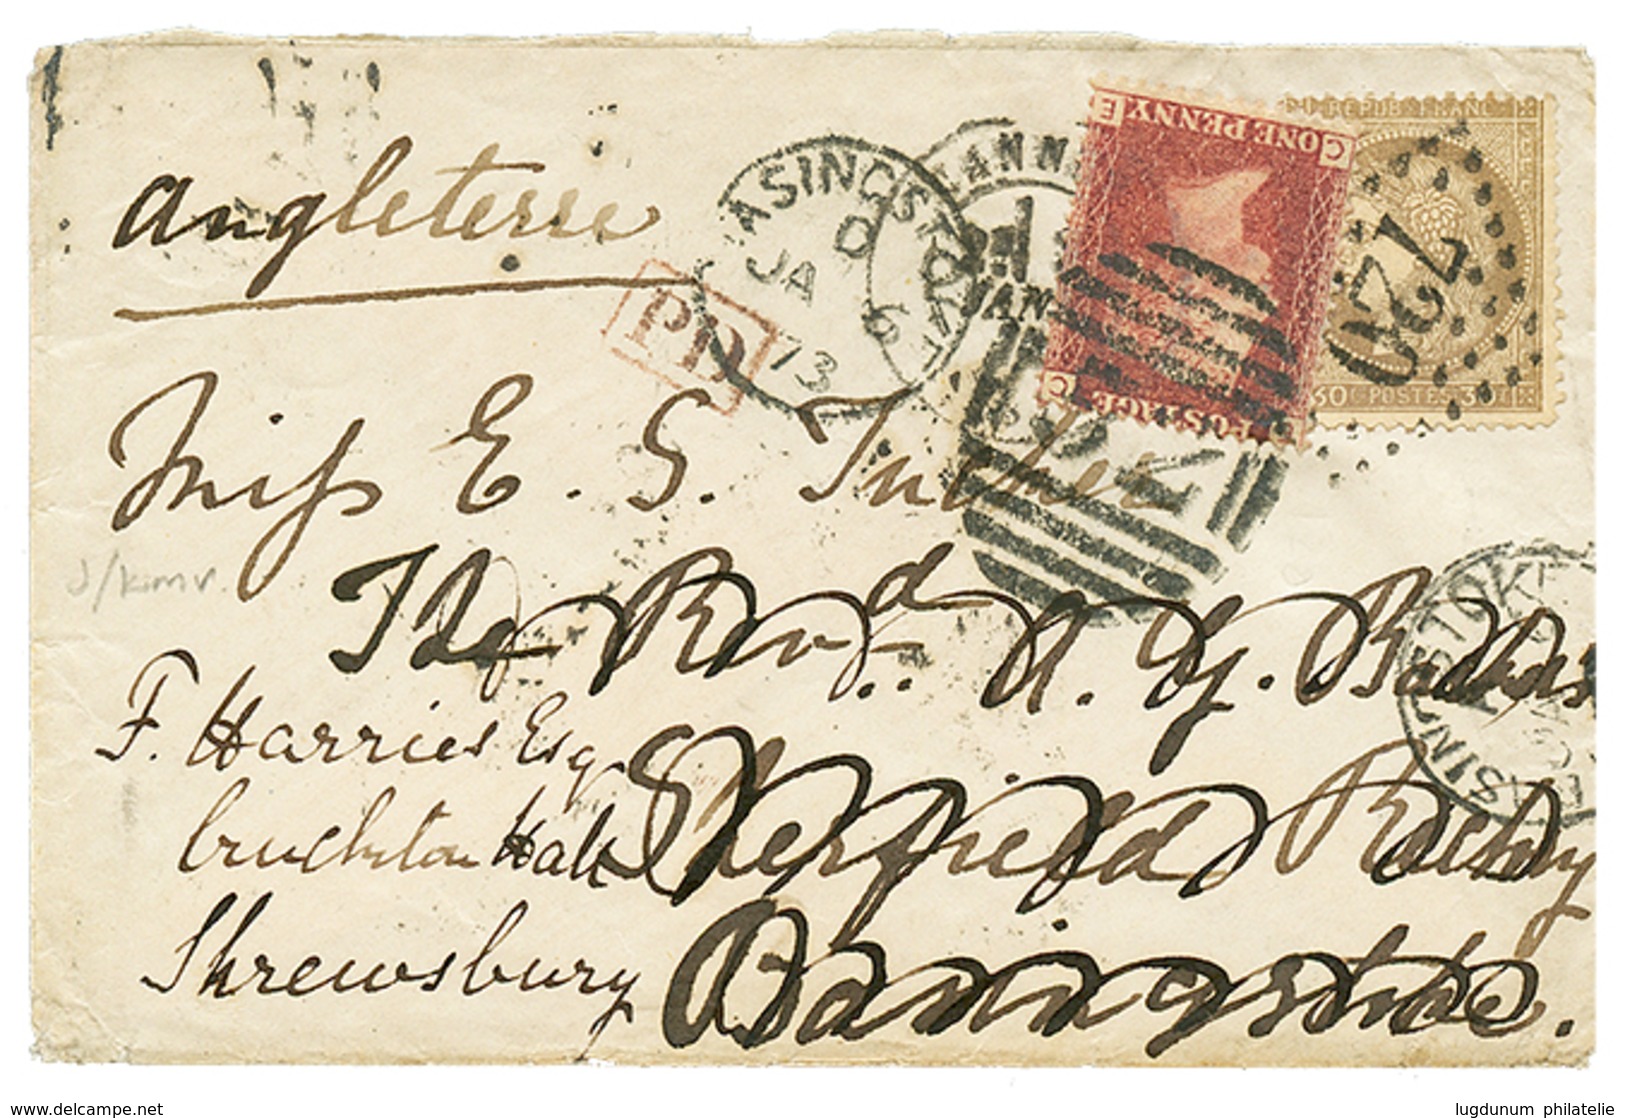 Angleterre
PD
BASINGSTOKE
D
JA 6
73
CANN
JAN
C ONE PENNY E
E POSTAGE C
REPUB FRANC
30 C POSTES 30 C
720
Miss E. S. Tucker
The Revd. A. G.
Sherfield Rectory
Basingstoke.
F. Harries Esq
Cruckton Hall
Shrewsbury
BASINGSTOKE
delcampe.net
lugdunum philatelie